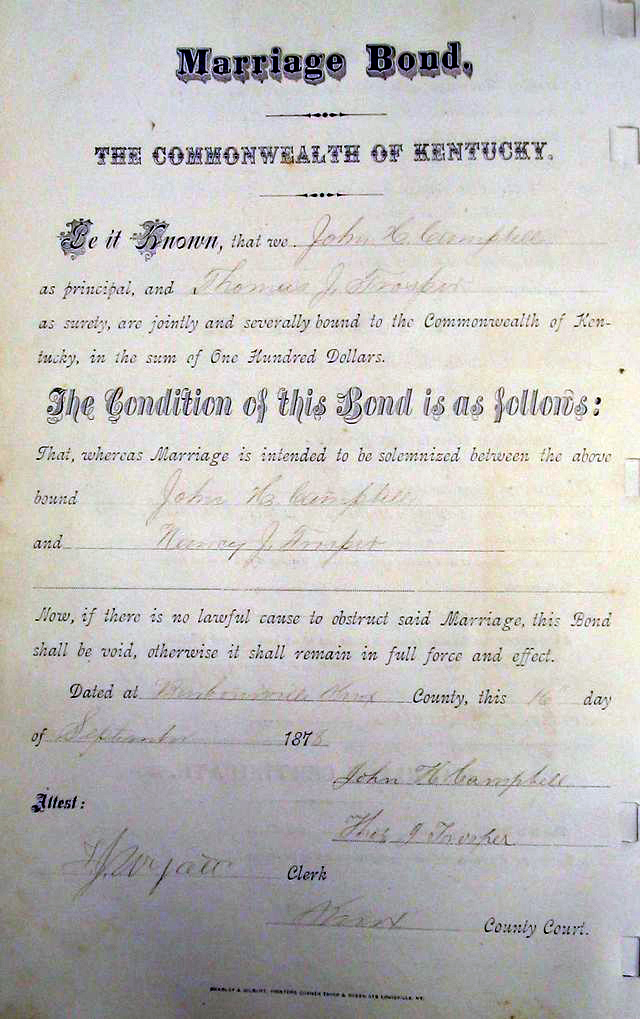 Marriage Bond,
THE COMMONWEALTH OF KENTUCKY.
Be it Known, that we John H. Campbell
as principal, and Thomas J. Trosper
as surety, are jointly and severally bound to the Commonwealth of Ken-
tucky, in the sum of One Hundred Dollars.
The Condition of this Bond is as follows:
That, whereas Marriage is intended to be solemnized between the above
bound John H. Campbell
and Nancy J. Trosper
Now, if there is no lawful cause to obstruct said Marriage, this Bond
shall be void, otherwise it shall remain in full force and effect.
Dated at Barbourville Knox County, this 16" day
of September 1878
John H Campbell
Attest:
Thos J Trosper
Clerk
Knox County Court.
BRADLEY & GILBERT, PRINTERS CORNER THIRD & GREEN STS LOUISVILLE, KY.